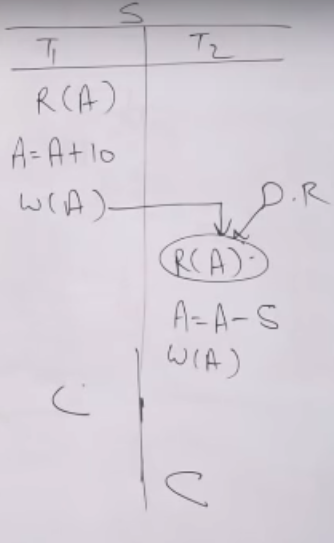 S
T1 T2
R(A)
A=A+10
W(A) D.R
R(A)
A=A-5
W(A)
C
C